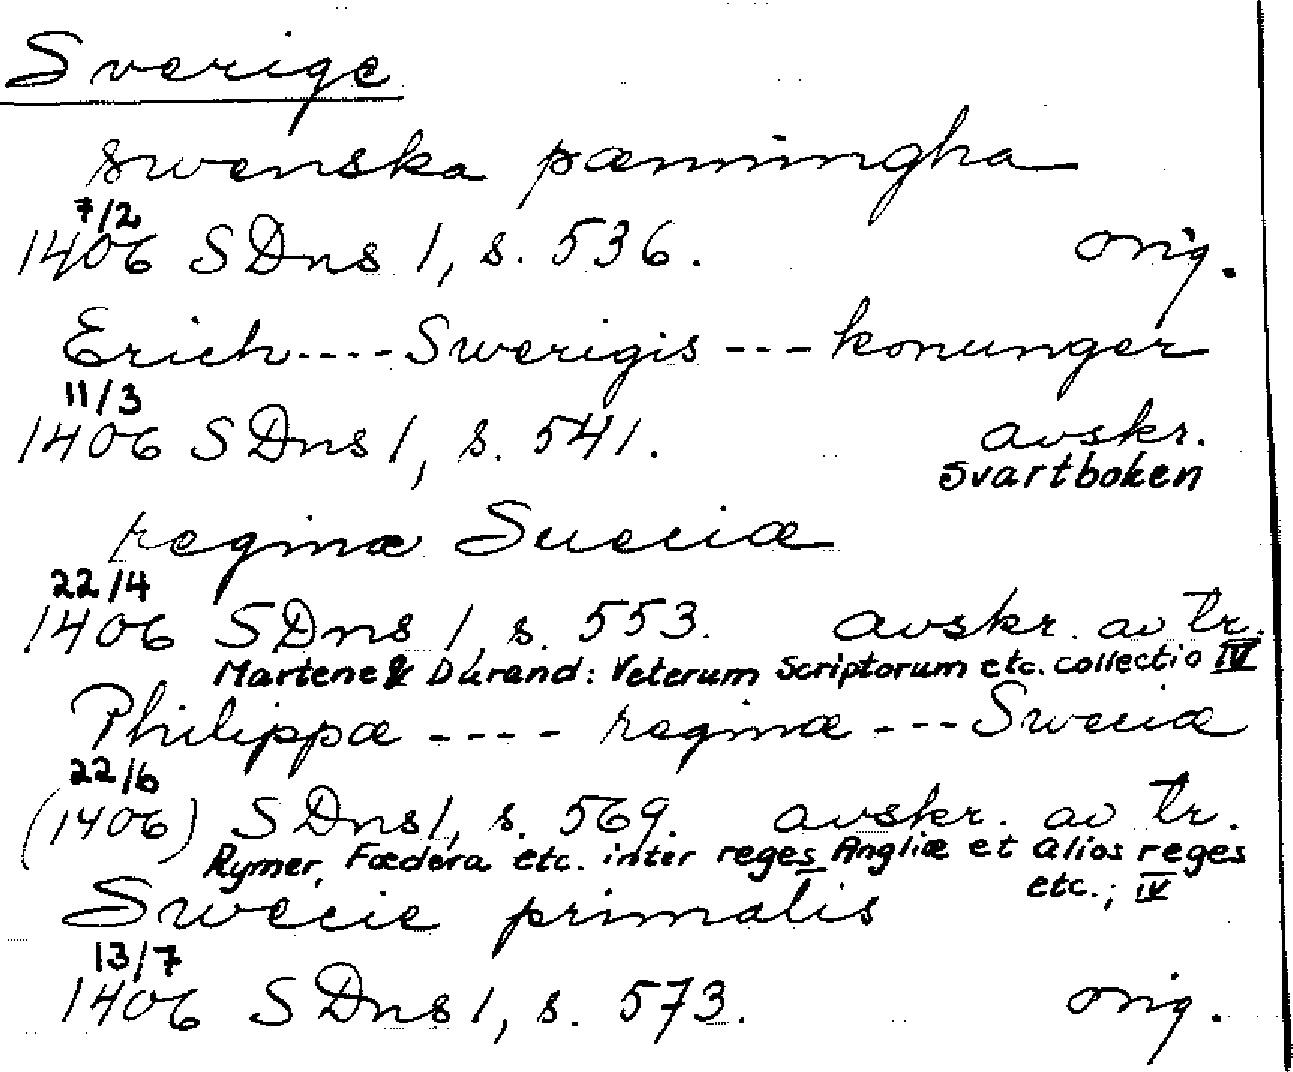 Sverige
swenska pænningha
7/2
1406 SDns 1, s. 536. orig.
Erich----Swerigis---konunger
11/3
1406 SDns 1, s. 541. avskr.
svartboken
reginæ Sueciæ
22/4
1406 SDns 1, s. 553. avskr. av tr.
Martene & Durand: Veterum Scriptorum etc. collectio IV
Philippæ ---- reginæ --- Sweciæ
22/6
(1406) SDns 1, s. 569. avskr. av tr.
Rymer, Fædera etc. inter reges Angliæ et alios reges
etc.; IV
Swecie primatis
13/7
1406 SDns 1, s. 573. orig.